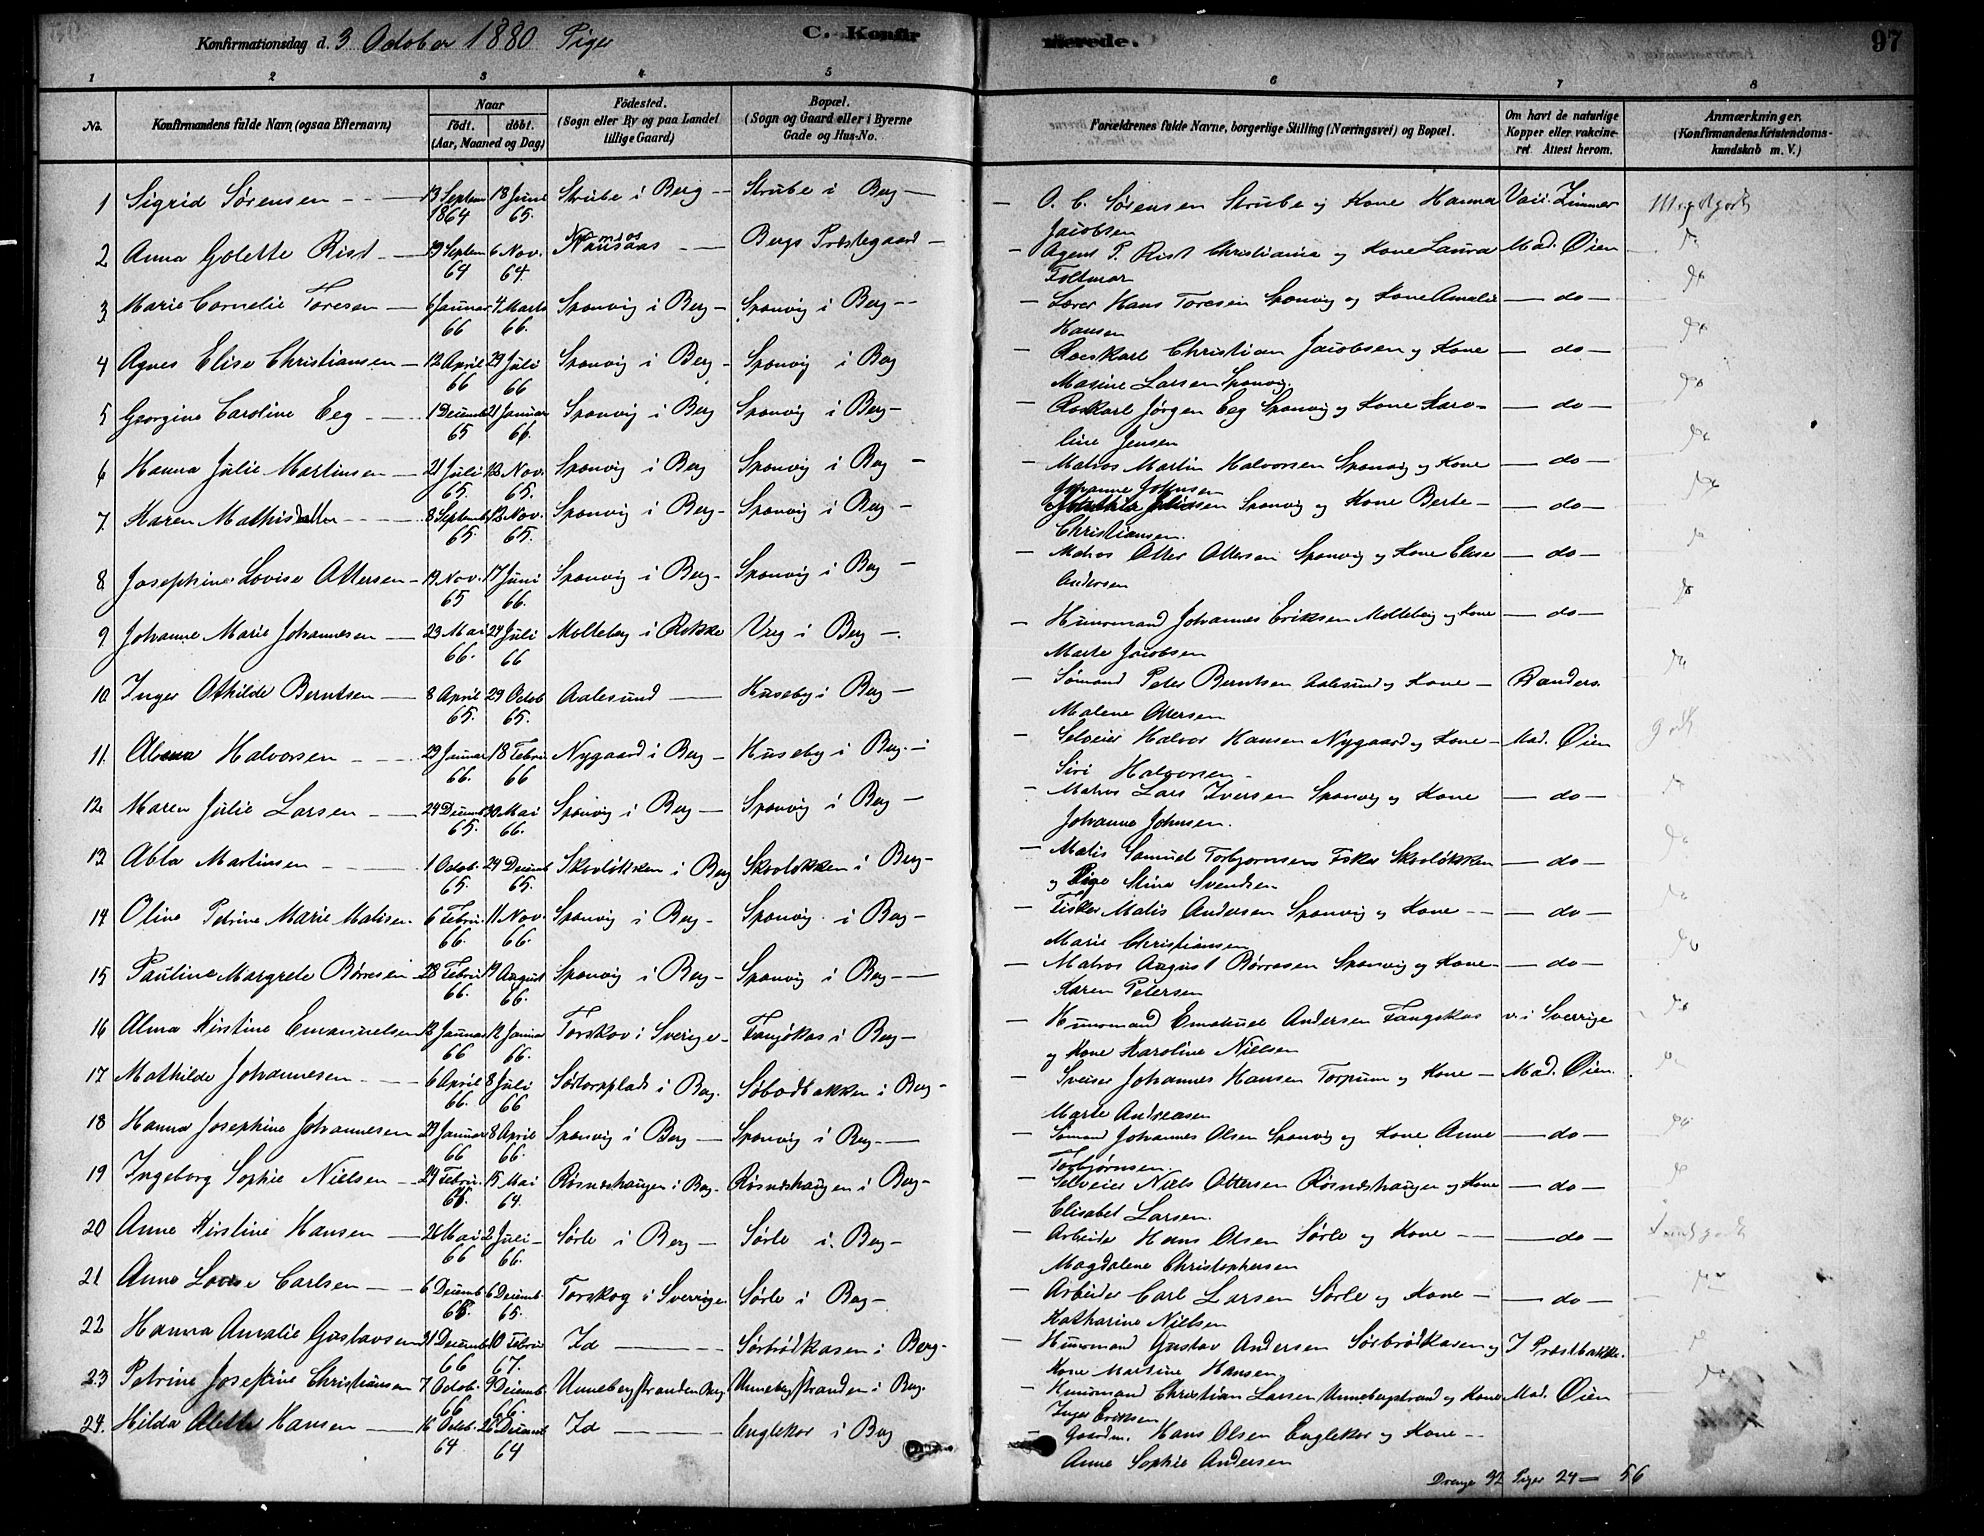 Konfirmationsdag d. 3 October 1880 Piger C. Konfirmerede. 97
1 2 3 4 5 6 7 8
No. Konfirmandens fulde Navn (ogsaa Efternavn) Naar födt. döbt. (Aar, Maaned og Dag) Födested. (Sogn eller By og paa Landet tillige Gaard) Bopæl. (Sogn og Gaard eller i Byerne Gade og Hus-No. Forældrenes fulde Navne, borgerlige Stilling (Næringsvei) og Bopæl. Om havt de naturlige Kopper eller vakcineret. Attest herom. Anmærkninger. (Konfirmandens Kristendomskundskab m. V.)
1 Sigrid Sørensen 13 Septem 1864 18 Juni 65. Strube i Berg Strube i Berg O. C. Sørensen Strube og Kone Hanna Jacobsen Vacc. Zimmer Meget godt
2 Anna Golette Rist 29 Septem 64 6 Nov. 64. Namsos Bergs Præstegaard Agent P. Rist Christiania og Kone Laura Foltmar Mad. Øien do
3 Marie Cornelie Toresen 6 Januar 66 4 Marts 66. Sponvig i Berg Sponvig i Berg Lærer Hans Toresen Sponvig og Kone Amalie Hansen do do
4 Agnes Elise Christiansen 12 April 66 29 Juli 66 Sponvig i Berg Sponvig i Berg Roeskarl Christian Jacobsen og Kone Masine Larsen Sponvig. do do
5 Georgine Caroline Eeg 1 Decemb 65 21 Januar 66. Sponvig i Berg Sponvig i Berg Roskarl Jørgen Eeg Sponvig og Kone Karoline Jensen do do
6 Hanna Julie Martinsen 21 Juli 65. 12 Nov. 65. Sponvig i Berg Sponvig i Berg Matros Martin Halvorsen Sponvig og Kone Johanne Johnsen do do
7 Karen Mathisdatter 8 Septemb 65 12 Nov. 65. Sponvig i Berg Sponvig i Berg Sponvig og Kone Berte Christiansen. do do
8 Josephine Lovise Ottersen 19 Nov. 65 17 Juni 66. Sponvig i Berg Sponvig i Berg Matros Otter Ottersen Sponvig og Kone Elise Andersen do do
9 Johanne Marie Johannesen 23 Mai 66. 29 Juli 66 Molteby i Rokke Veg i Berg Husmand Johannes Eriksen Molteberg og Kone Marte Jacobsen do do
10 Inger Othilde Berntsen 8 April 65. 29 Octob 65. Aalesund Huseby i Berg Sømand Peter Berntsen Aalesund og Kone Malene Ottersen Randers. do
11. Halvorsen 29 Januar 66. 18 Febru 66 Nygaard i Berg Huseby i Berg Selveier Halvor Hansen Nygaard og Kone Siri Halvorsen Mad. Øien godt
12 Maren Julie Larsen 24 Decemb 65. 20 Mai 66. Sponvig i Berg Sponvig i Berg Matros Lars Iversen Sponvig og Kone Johanne Johnsen. do do
13 Abla Martinsen 1 Octob. 65. 24 Decemb 65. Skovløkken i Berg Skovløkken i Berg Matis Samuel Torbjørnsen Fisker Skovløkken og Pige Stine Svendsen do do
14 Oline Petrine Marie Matisen 6 Febru 66. 11 Nov. 66. Sponvig i Berg Sponvig i Berg Fisker Matis Andersen Sponvig og Kone Marie Christiansen do do
15 Pauline Margrete Børresen 28 Febru 66. 19 August 66. Sponvig i Berg Sponvig i Berg Matros August Børresen Sponvig og Kone Karen Petersen do do
16 Alma Kirstine Emanuelsen 12 Januar 66 12 Januar 66. Torskov i Sverige Fangekas i Berg Husmand Emanuel Andersen Fangekas og Kone Karoline Nielsen v. i Sverrige do
17 Mathilde Johannesen 6 April 66. 8 Juli 66 Södtorpplads i Berg. Söbodbakken i Berg Sveiser Johannes Hansen Torpum og Kone Marte Andreasen Mad. Øien. do
18 Hanna Josephine Johannesen 23 Januar 66 8 April 66. Sponvig i Berg Sponvig i Berg Sømand Johannes Olsen Sponvig og Kone Anne Torbjørnsen. do do
19 Ingeborg Sophie Nielsen 24 Febru. 15 Mai 64. Røsneshaugen i Berg Røsneshaugen i Berg Selveier Niels Ottersen Røsneshaugen og Kone Elisabet Larsen. do do
20 Anne Kirstine Hansen 26 Mai 66 2 Juli 66. Sørle i Berg Sørle i Berg Arbeider Hans Olsen Sørle og Kone Magdalene Christophersen do godt
21 Anne Lovise Carlsen 6 Decemb 65. 6 Decemb. 65. Torskog i Sverrige Sørle i Berg Arbeider Carl Larsen Sørle og Kone Katharine Nielsen do do
22 Hanna Amalie Gustavsen 31 Decemb 66 10 Febru 67. Id Sørbrødkasen i Berg Husmand Gustav Andersen Sørbrødkasen og Kone Martine Hansen I Præstbakke. do
23 Petrine Josefine Christiansen 7 Octob. 66 9 Decemb. 66. Unnebergstranden Berg Unnebergstranden i Berg. Husmand Christian Larsen Unnebergstrand og Kone Inger Eriksen Mad. Øien do
24. Hilda Hansen 16 Octob. 64 26 Decemb 64 Id Englekor i Berg Gaardm. Hans Olsen Englekor og Kone Anne Sophie Andersen
Drenge 32 Piger 24 — 56